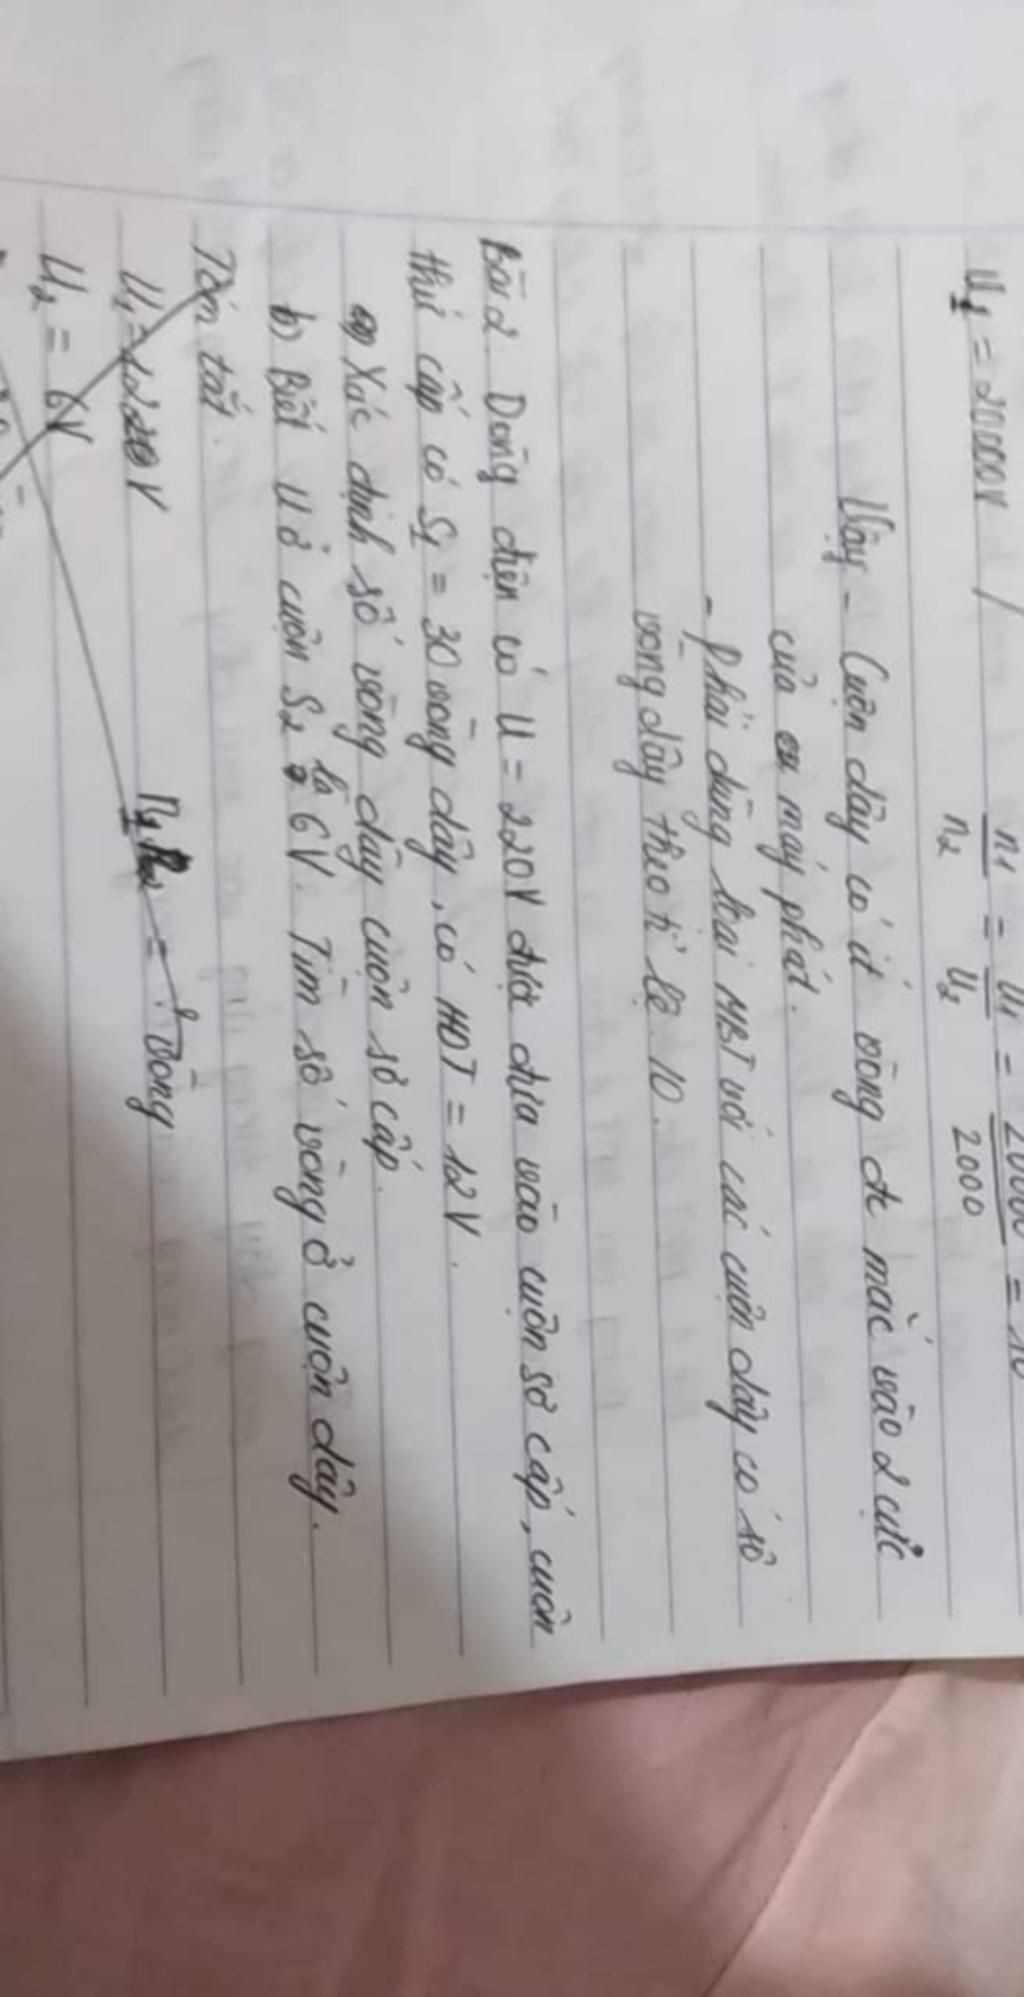 U1 = 20000V / n1/n2 = U1/U2 = 20000/2000 = 10
Vậy - Cuộn dây có ít vòng đc mắc vào 2 cực
của máy phát.
- Phải dùng loại MBT với các cuộn dây có số
vòng dây theo tỉ lệ 10.
Bài 2. Dòng điện có U = 220V đưa vào cuộn sơ cấp, cuộn
thứ cấp có S2 = 30 vòng dây, có HĐT = 12V.
a) Xác định số vòng dây cuộn sơ cấp.
b) Biết U ở cuộn S2 là 6V. Tìm số vòng ở cuộn dây.
Tóm tắt.
U1 = 220V n1 = ? Vòng
U2 = 6V